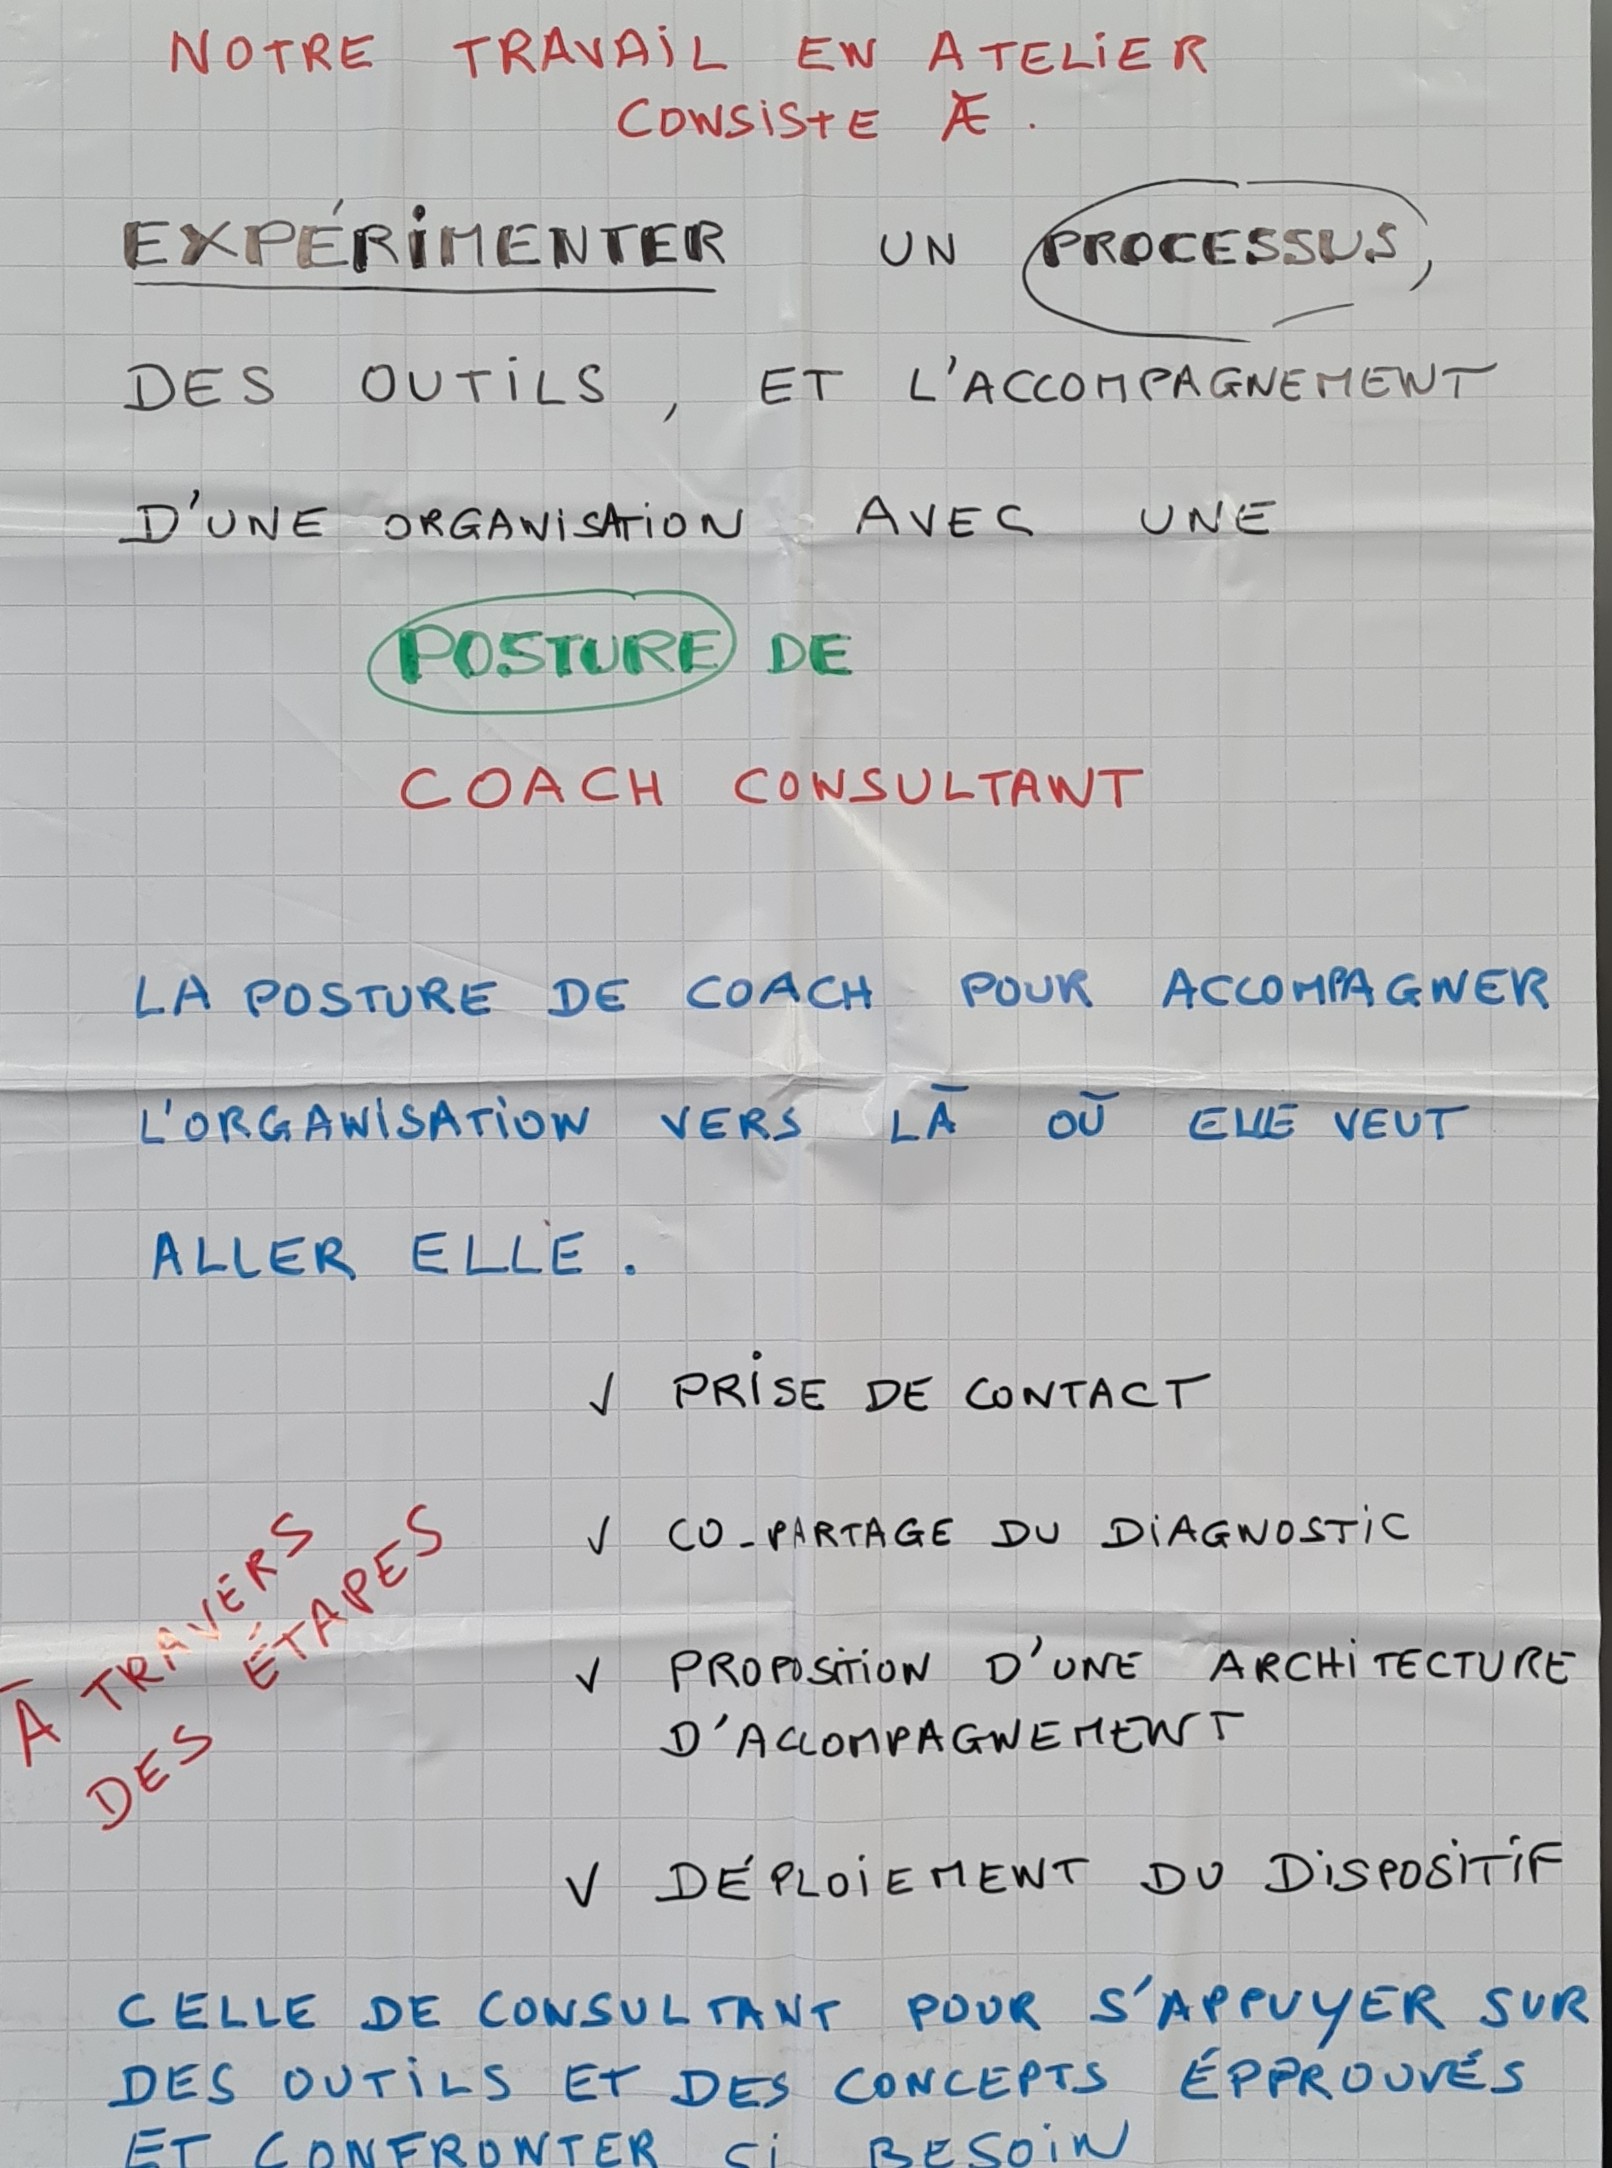 NOTRE TRAVAIL EN ATELIER
CONSISTE À.
EXPÉRIMENTER UN PROCESSUS,
DES OUTILS, ET L'ACCOMPAGNEMENT
D'UNE ORGANISATION AVEC UNE
POSTURE DE
COACH CONSULTANT
LA POSTURE DE COACH POUR ACCOMPAGNER
L'ORGANISATION VERS LÀ OÙ ELLE VEUT
ALLER ELLE.
√ PRISE DE CONTACT
√ CO-PARTAGE DU DIAGNOSTIC
À TRAVERS
DES ÉTAPES
√ PROPOSITION D'UNE ARCHITECTURE
D'ACCOMPAGNEMENT
√ DÉPLOIEMENT DU DISPOSITIF
CELLE DE CONSULTANT POUR S'APPUYER SUR
DES OUTILS ET DES CONCEPTS ÉPPROUVÉS
ET CONFRONTER SI BESOIN